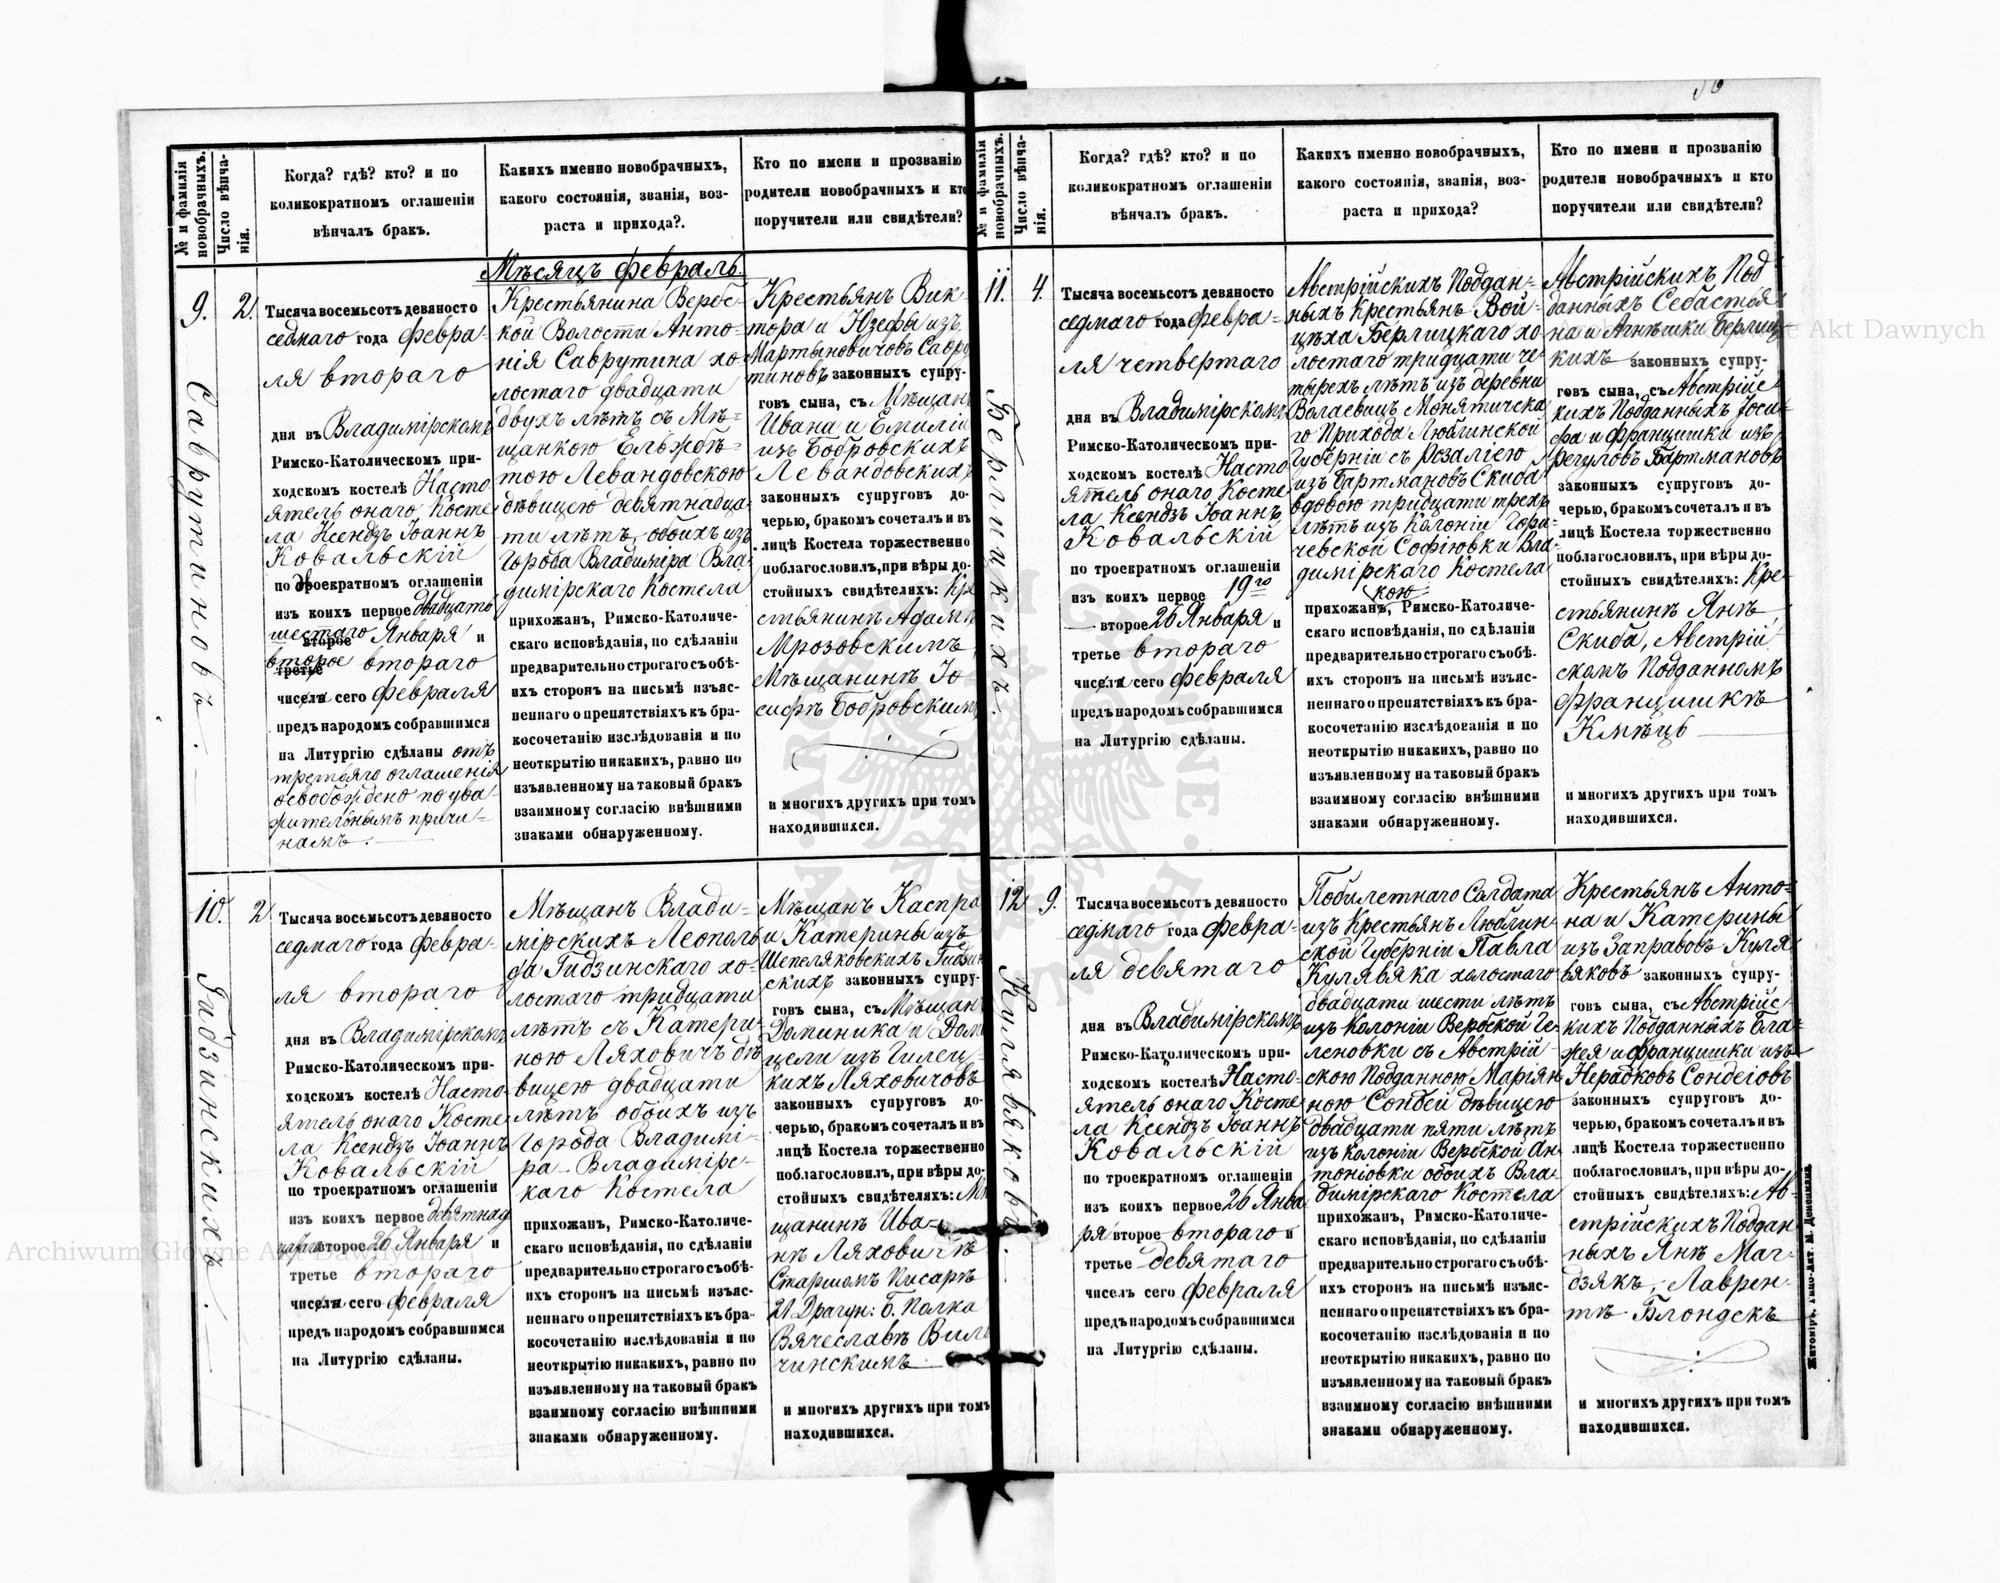 № и фамилія новобрачныхъ.
Число вѣнча-
нія.
Когда? гдѣ? кто? и по
коликократномъ оглашеніи
вѣнчалъ бракъ.
Какихъ именно новобрачныхъ,
какого состоянія, званія, воз-
раста и прихода?.
Кто по имени и прозванію
родители новобрачныхъ и кто
поручители или свидѣтели?
9.
Савутиновъ.
2.
Тысяча восемьсотъ девяносто
седмаго года февра-
ля втораго
дня въ Владимірскомъ
Римско-Католическомъ при-
ходскомъ костелѣ Насто
ятель онаго Косте
ла Ксендзъ Іоаннъ
Ковальскій
по двоекратномъ оглашеніи
изъ коихъ первое двадцать
шестаго Января и
второе
второе втораго
третье
числа сего февраля
предъ народомъ собравшимся
на Литургію сдѣланы отъ
третьяго оглашенія
освобождено по ува-
жительнымъ причи-
намъ.
Мѣсяцъ февраль.
Крестьянина Вербс-
кой Волости Анто-
нія Саврутина хо-
лостаго двадцати
двухъ лѣтъ съ Мѣ-
щанкою Ельжбѣ-
тою Левандовскою
дѣвицею девятнадца
ти лѣтъ, обоихъ изъ
Города Владиміра Вла-
димірскаго Костела
прихожанъ, Римско-Католиче-
скаго исповѣданія, по сдѣланіи
предварительно строгаго съ обѣ-
ихъ сторонъ на письмѣ изъяс-
неннаго о препятствіяхъ къ бра-
косочетанію изслѣдованія и по
неоткрытію никакихъ, равно по
изъявленному на таковый бракъ
взаимному согласію внѣшними
знаками обнаруженному.
Крестьянъ Вик-
тора и Юзефы изъ
Мартыновичовъ Савру
тиновъ законныхъ супру-
говъ сына, съ Мѣщанъ
Ивана и Емиліи
изъ Бобровскихъ
Левандовскихъ
законныхъ супруговъ до-
черью, бракомъ сочеталъ и въ
лицѣ Костела торжественно
поблагословилъ, при вѣры до-
стойныхъ свидѣтеляхъ: Кре
стьянинѣ Адамѣ
Мрозовскимъ
Мѣщанинѣ Іо-
сифѣ Бобровскимъ
и многихъ другихъ при томъ
находившихся.
10.
Гидзинскихъ.
2
Тысяча восемьсотъ девяносто
седмаго года февра-
ля втораго
дня въ Владимірскомъ
Римско-Католическомъ при-
ходскомъ костелѣ Насто-
ятель онаго Косте
ла Ксендзъ Іоаннъ
Ковальскій
по троекратномъ оглашеніи
изъ коихъ первое девятнад
цатаго второе 26 Января и
третье втораго
числа сего февраля
предъ народомъ собравшимся
на Литургію сдѣланы.
Мѣщанъ Влади-
мірскихъ Леополь
да Гидзинскаго хо-
лостаго тридцати
лѣтъ съ Катери-
ною Ляховичъ дѣ
вицею двадцати
лѣтъ обоихъ изъ
Города Владимі-
ра Владимірс-
каго Костела
прихожанъ, Римско-Католиче-
скаго исповѣданія, по сдѣланіи
предварительно строгаго съ обѣ-
ихъ сторонъ на письмѣ изъяс-
неннаго о препятствіяхъ къ бра-
косочетанію изслѣдованія и по
неоткрытію никакихъ, равно по
изъявленному на таковый бракъ
взаимному согласію внѣшними
знаками обнаруженному.
Мѣщанъ Каспра
и Катерины изъ
Шепеляковскихъ Гидзин
скихъ законныхъ супру-
говъ сына, съ Мѣщанъ
Доминика и Доми
цели изъ Гилец-
кихъ Ляховичовъ
законныхъ супруговъ до-
черью, бракомъ сочеталъ и въ
лицѣ Костела торжественно
поблагословилъ, при вѣры до-
стойныхъ свидѣтеляхъ: Мѣ
щанинѣ Ива-
нѣ Ляховичѣ
Старшомъ Писарѣ
21 Драгун: Б. Полка
Вячеславѣ Виль
чинскимъ
и многихъ другихъ при томъ
находившихся.
№ и фамилія новобрачныхъ.
Число вѣнча-
нія.
Когда? гдѣ? кто? и по
коликократномъ оглашеніи
вѣнчалъ бракъ.
Какихъ именно новобрачныхъ,
какого состоянія, званія, воз-
раста и прихода?
Кто по имени и прозванію
родители новобрачныхъ и кто
поручители или свидѣтели?
11.
Берлицкихъ.
4.
Тысяча восемьсотъ девяносто
седмаго года февра-
ля четвертаго
дня въ Владимірскомъ
Римско-Католическомъ при-
ходскомъ костелѣ Насто
ятель онаго Косте
ла Ксендзъ Іоаннъ
Ковальскій
по троекратномъ оглашеніи
изъ коихъ первое 19го
второе 26 Января и
третье втораго
числа сего февраля
предъ народомъ собравшимся
на Литургію сдѣланы.
Австрійскихъ Поддан-
ныхъ Крестьянъ Вой-
цѣха Берлицкаго хо
лостаго тридцати че
тырехъ лѣтъ изъ деревни
Волаевицъ Монятичска
го Прихода Люблинской
Губерніи съ Розаліею
изъ Бартмановъ Скиба
вдовою тридцати трехъ
лѣтъ изъ Колоніи Гори-
чевской Софіювки Вла-
димірскаго Костела
кою
прихожанъ, Римско-Католиче-
скаго исповѣданія, по сдѣланіи
предварительно строгаго съ обѣ-
ихъ сторонъ на письмѣ изъяс-
неннаго о препятствіяхъ къ бра-
косочетанію изслѣдованія и по
неоткрытію никакихъ, равно по
изъявленному на таковый бракъ
взаимному согласію внѣшними
знаками обнаруженному.
Австрійскихъ Под
данныхъ Себастья
на и Агнѣшки Берлиц
кихъ законныхъ супру-
говъ сына, съ Австрійс
кихъ Подданныхъ Іоси-
фа и Францишки изъ
Регуловъ Бартмановъ
законныхъ супруговъ до-
черью, бракомъ сочеталъ и въ
лицѣ Костела торжественно
поблагословилъ, при вѣры до-
стойныхъ свидѣтеляхъ: Кре-
стьянинѣ Янѣ
Скиба, Австрій
скомъ Подданномъ
Францишкѣ
Кмѣцъ
и многихъ другихъ при томъ
находившихся.
12
Кулявяковъ.
9.
Тысяча восемьсотъ девяносто
седмаго года февра-
ля девятаго
дня въ Владимірскомъ
Римско-Католическомъ при-
ходскомъ костелѣ Насто-
ятель онаго Косте
ла Ксендзъ Іоаннъ
Ковальскій
по троекратномъ оглашеніи
изъ коихъ первое 26 Янва
ря второе втораго и
третье девятаго
чиселъ сего февраля
предъ народомъ собравшимся
на Литургію сдѣланы.
Побилетнаго Солдата
изъ Крестьянъ Люблин-
ской Губерніи Павла
Кулявяка холостаго
двадцати шести лѣтъ
изъ Колоніи Вербской Ге-
леновки съ Австрій-
скою Подданною Маріян
ною Сондей дѣвицею
двадцати пяти лѣтъ
изъ колоніи Вербской Ан-
тоніовки обоихъ Вла-
димірскаго Костела
прихожанъ, Римско-Католиче-
скаго исповѣданія, по сдѣланіи
предварительно строгаго съ обѣ-
ихъ сторонъ на письмѣ изъяс-
неннаго о препятствіяхъ къ бра-
косочетанію изслѣдованія и по
неоткрытію никакихъ, равно по
изъявленному на таковый бракъ
взаимному согласію внѣшними
знаками обнаруженному.
Крестьянъ Анто-
на и Катерины
изъ Заправовъ Куля
вяковъ законныхъ супру-
говъ сына, съ Австрійс-
кихъ Подданныхъ Бла-
жея и Францишки изъ
Нерадковъ Сондеіовъ
законныхъ супруговъ до-
черью, бракомъ сочеталъ и въ
лицѣ Костела торжественно
поблагословилъ, при вѣры до-
стойныхъ свидѣтеляхъ: Ав-
стрійскихъ Поддан
ныхъ Янѣ Маг-
дзякъ, Лаврен-
тѣ Блондекъ
и многихъ другихъ при томъ
находившихся.
Житоміръ, Типо-Лит. М. Дененмана.
Archiwum Główne Akt Dawnych